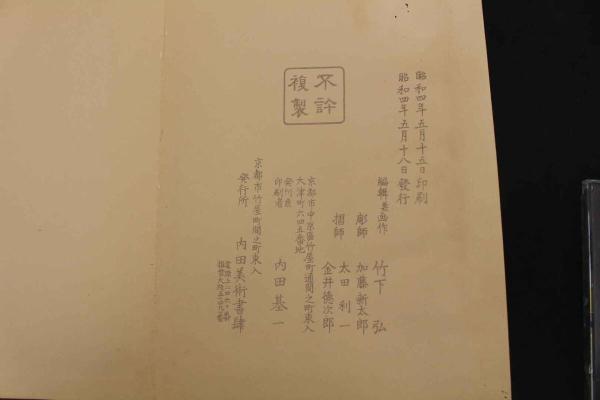 昭和四年五月十五日印刷
昭和四年五月十八日發行
不許
複製
編輯並画作 竹下 弘
彫師 加藤新太郎
摺師 太田利一
金井德次郎
京都市中京區竹屋町通間之町東入
大津町六四五番地
發行兼
印刷者 内田基一
京都市竹屋町間之町東入
發行所 内田美術書肆